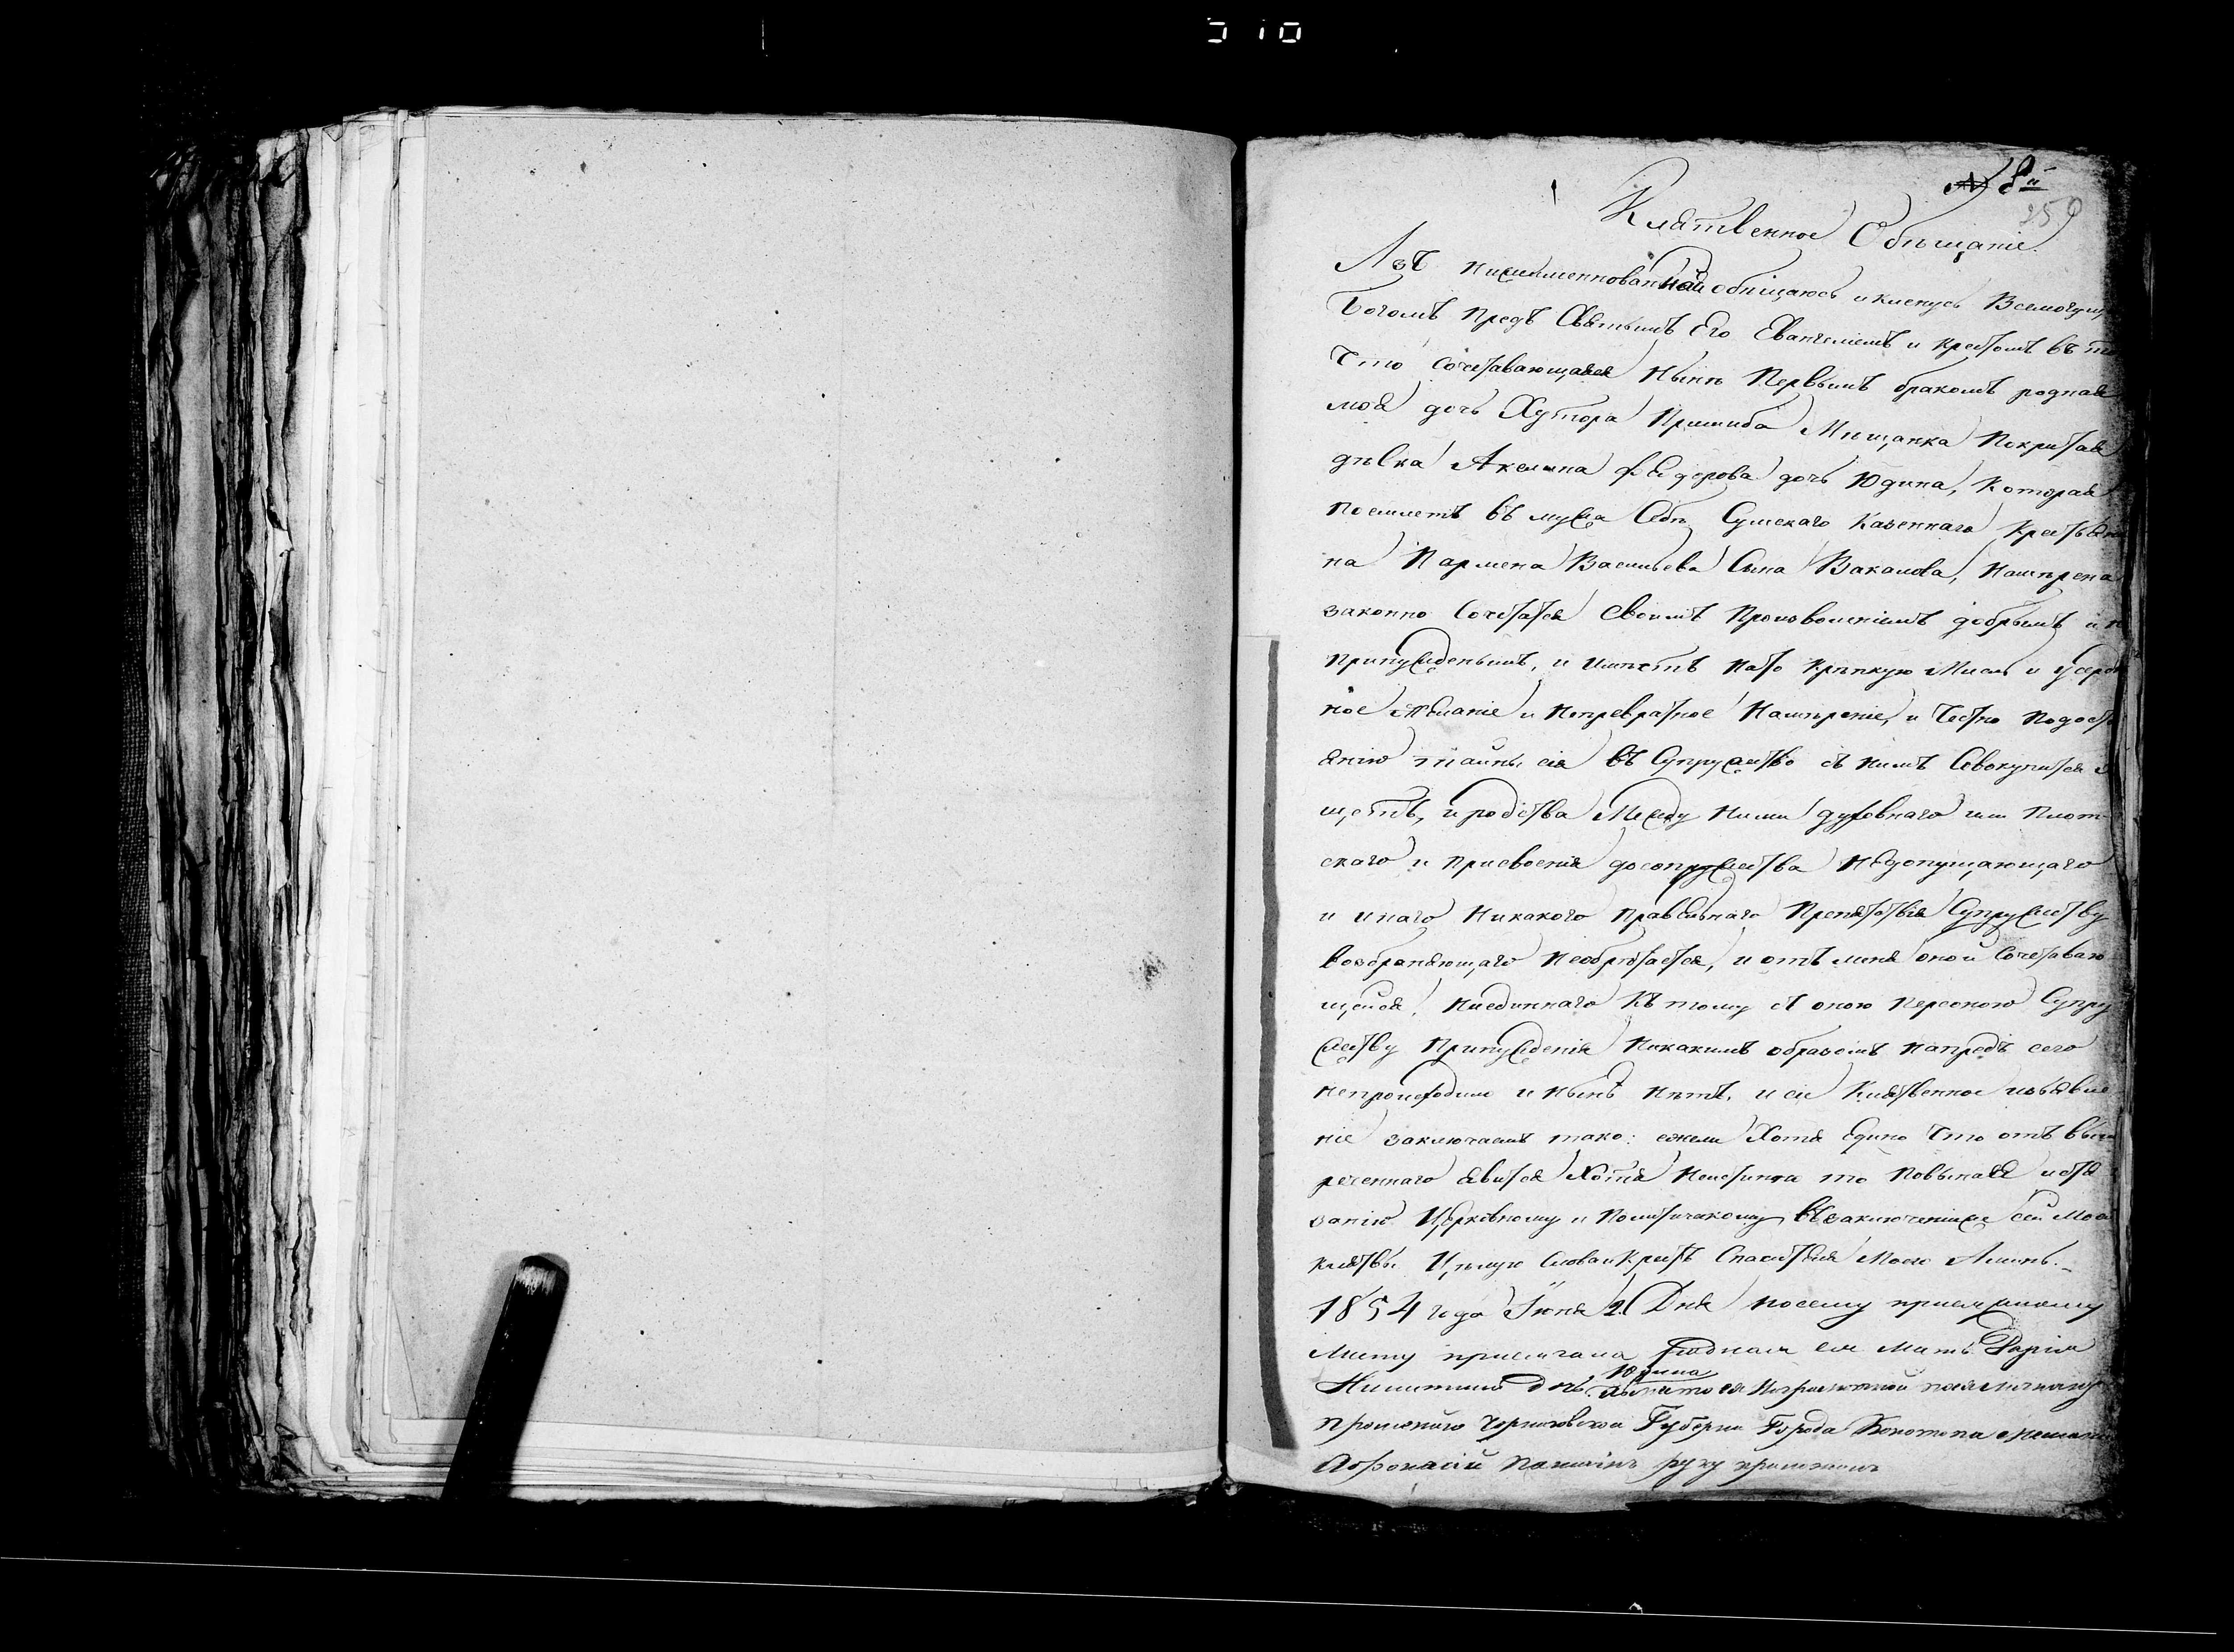 510
№ 8й
259
Клятвенное Обѣщаніе.
Азъ нижеименнованная обѣщаюсь и кленусь Всемогущ
Богомъ предъ Святымъ Его Евангеліемъ и крестомъ въ то
что сочетавающаяся нынѣ первымъ бракомъ родная
моя дочь Хутора Пришиба Мѣщанка Покритая
дѣвка Акелина Федорова дочь Юдина, которая
поемлетъ въ мужа себѣ Сумскаго Казеннаго Крестьяни
на Пармена Васильева Сына Вакалова, намѣрена
законно сочетатся своимъ произволеніемъ добрымъ и н
принужденнымъ, и имѣетъ на то крѣпкую мысль и усерд
ное желаніе и непревратное намѣреніе, и честно подосто
янію тайны сія въ супружество съ нимъ совокупится
щетъ, и родства между ними духовнаго или плот
скаго и присвоенія досопружества недопущающаго
и инаго никакого правильнаго препятствія супружеству
возбраняющаго необрѣтается, и отъ мене оной сочетаваю
щейся, ниединнаго къ тому съ оною персоною супру
жеству принужденія никакимъ образомъ напредъ сего
непроисходило и нынѣ нѣтъ, и сіе клятвенное изъявле
ніе заключаемъ тако: ежели хотя едино что отъ выше
реченнаго явится хотя неистинна то повынная истя
занію церковному и политичекому, въ заключеніиже сей моей
клятвы цѣлую слова и крестъ Спасителя Моего Аминь.
1854 года Іюня 2 Дня посему присяжному
листу присягала родная ея мать Дарія
Никитина дочь Юдина
прошенію Черниговской Губерніи Города Конотопа мещани
Афонасій руку приложилъ